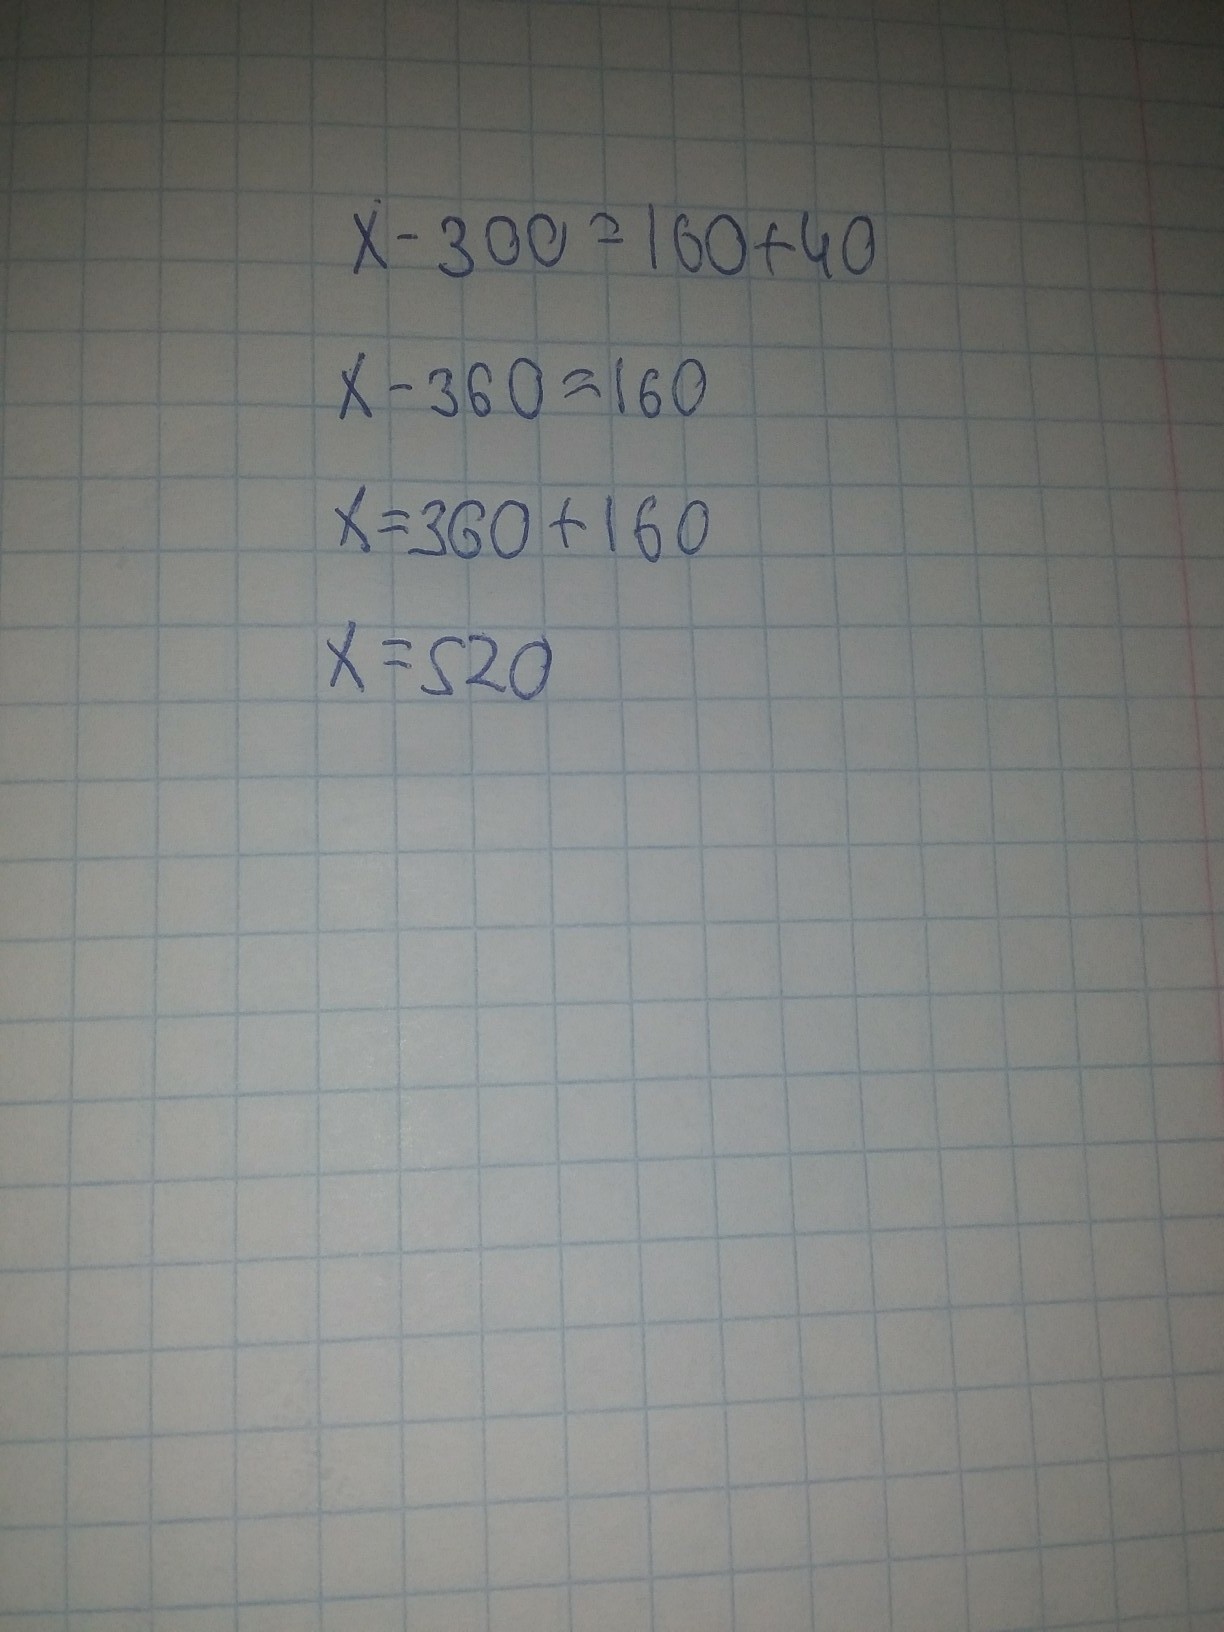 x-300=160+40
x-360=160
x=360+160
x=520